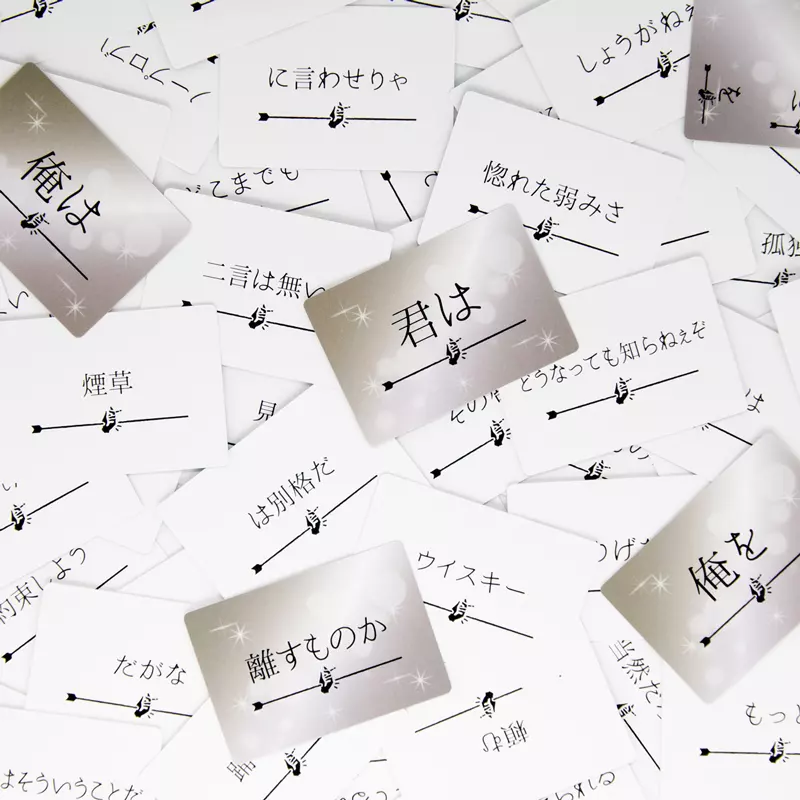 に言わせりゃ
しょうがねえ
俺は
惚れた弱みさ
どこまでも
孤独
二言は無い
君は
煙草
どうなっても知らねぇぞ
見
は別格だ
俺を
ウイスキー
約束しよう
離すものか
だがな
当然だ
頼む
もっと
はそういうことだ